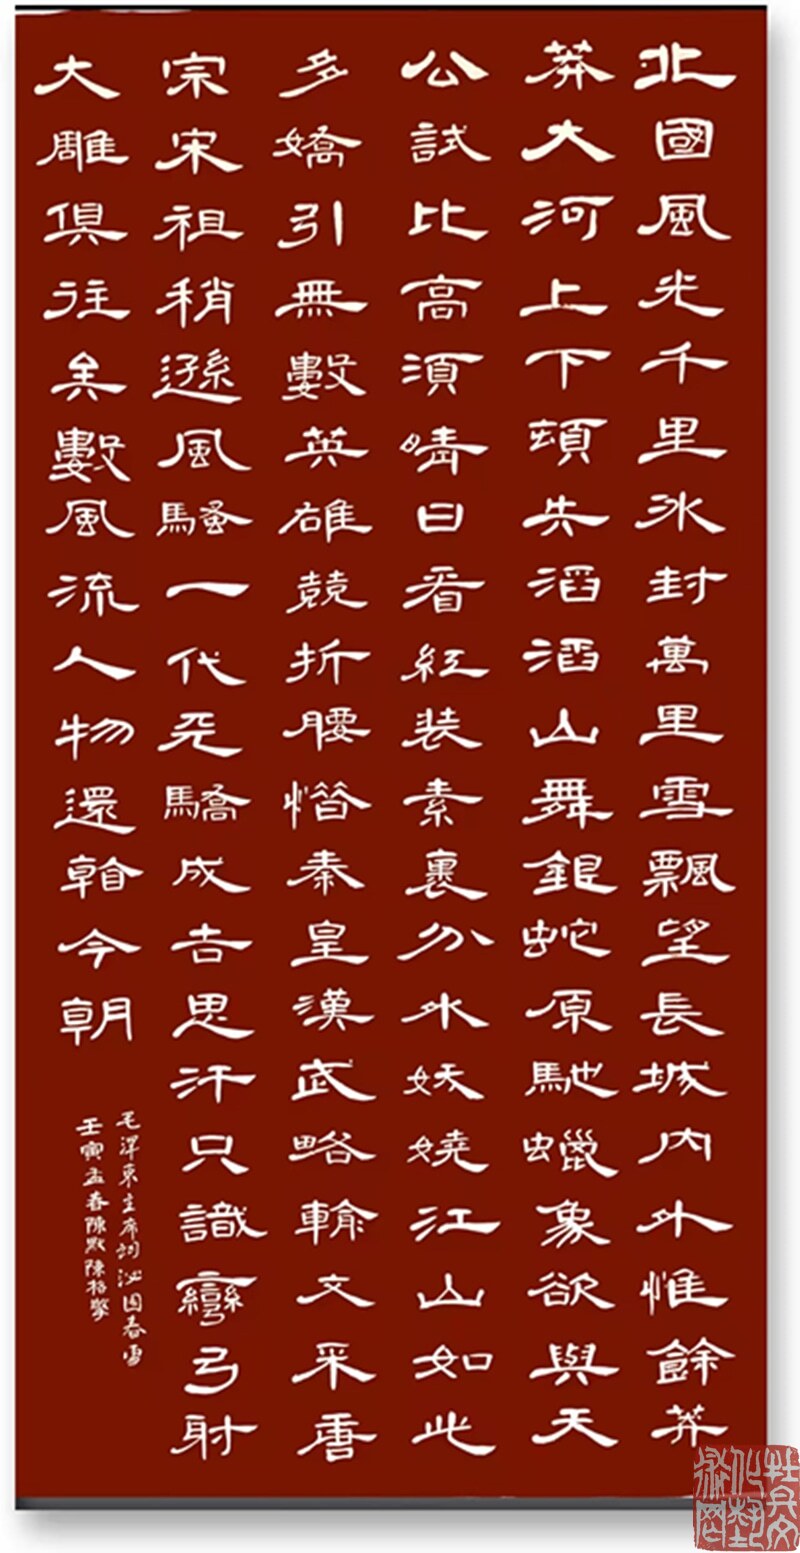 北國風光千里冰封萬里雪飄望長城内外惟餘莽
莽大河上下頓失滔滔山舞銀蛇原馳蠟象欲與天
公試比高須晴日看紅装素裹分外妖嬈江山如此
多嬌引無數英雄競折腰惜秦皇漢武略輸文采唐
宗宋祖稍遜風騷一代天驕成吉思汗只識彎弓射
大雕俱往矣數風流人物還看今朝
毛澤東主席詞沁園春雪
壬寅孟春陳默陳